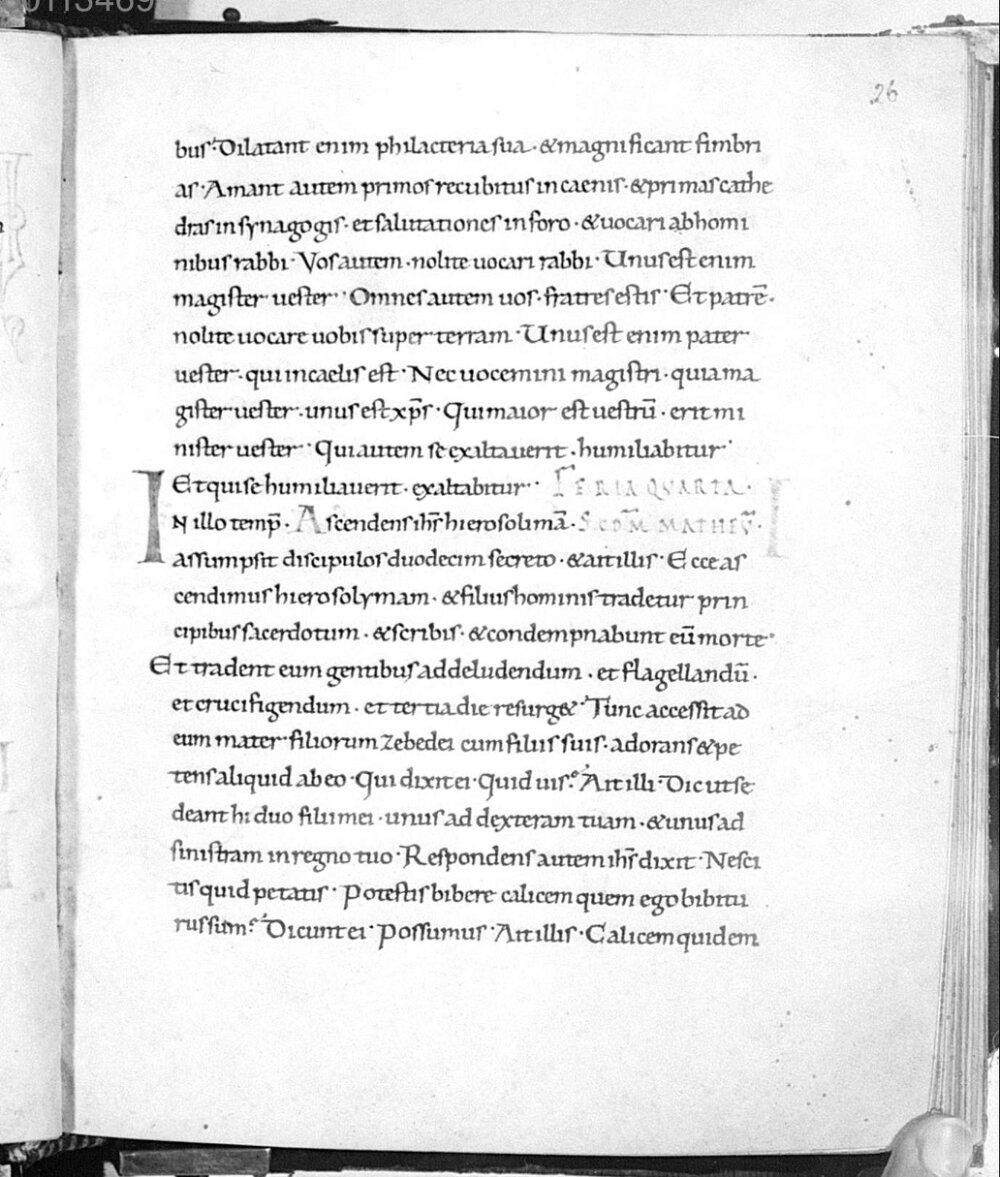 0113469
26
bus. Dilatant enim philacteria sua. & magnificant fimbri
as. Amant autem primos recubitus in caenis. & primas cathe
dras in synagogis. et salutationes in foro. & uocari ab homi
nibus rabbi. Vos autem. nolite uocari rabbi. Unus est enim
magister uester. Omnes autem uos. fratres estis. Et patrē.
nolite uocare uobis super terram. Unus est enim pater
uester. qui in caelis est. Nec uocemini magistri. quia ma
gister uester. unus est xp̄s. Qui maior est uestrū. erit mi
nister uester. Qui autem se exaltauerit. humiliabitur.
Et qui se humiliauerit. exaltabitur. FERIA QUARTA.
IN illo temp̄. Ascendens ih̄s hierosolimā. S̄ COM̄ MATHEV̄.
assumpsit discipulos duodecim secreto. & ait illis. Ecce as
cendimus hierosolymam. & filius hominis tradetur prin
cipibus sacerdotum. & scribis. & condempnabunt eū morte.
Et tradent eum gentibus ad deludendum. et flagellandū.
et crucifigendum. et tertia die resurg&. Tunc accessit ad
eum mater filiorum zebedei cum filiis suis. adorans & pe
tens aliquid ab eo. Qui dixit ei. Quid uis? Ait illi. Dic ut se
deant hi duo filii mei. unus ad dexteram tuam. & unus ad
sinistram in regno tuo. Respondens autem ih̄s dixit. Nesci
tis quid petatis. Potestis bibere calicem quem ego bibitu
rus sum? Dicunt ei. Possumus. Ait illis. Calicem quidem